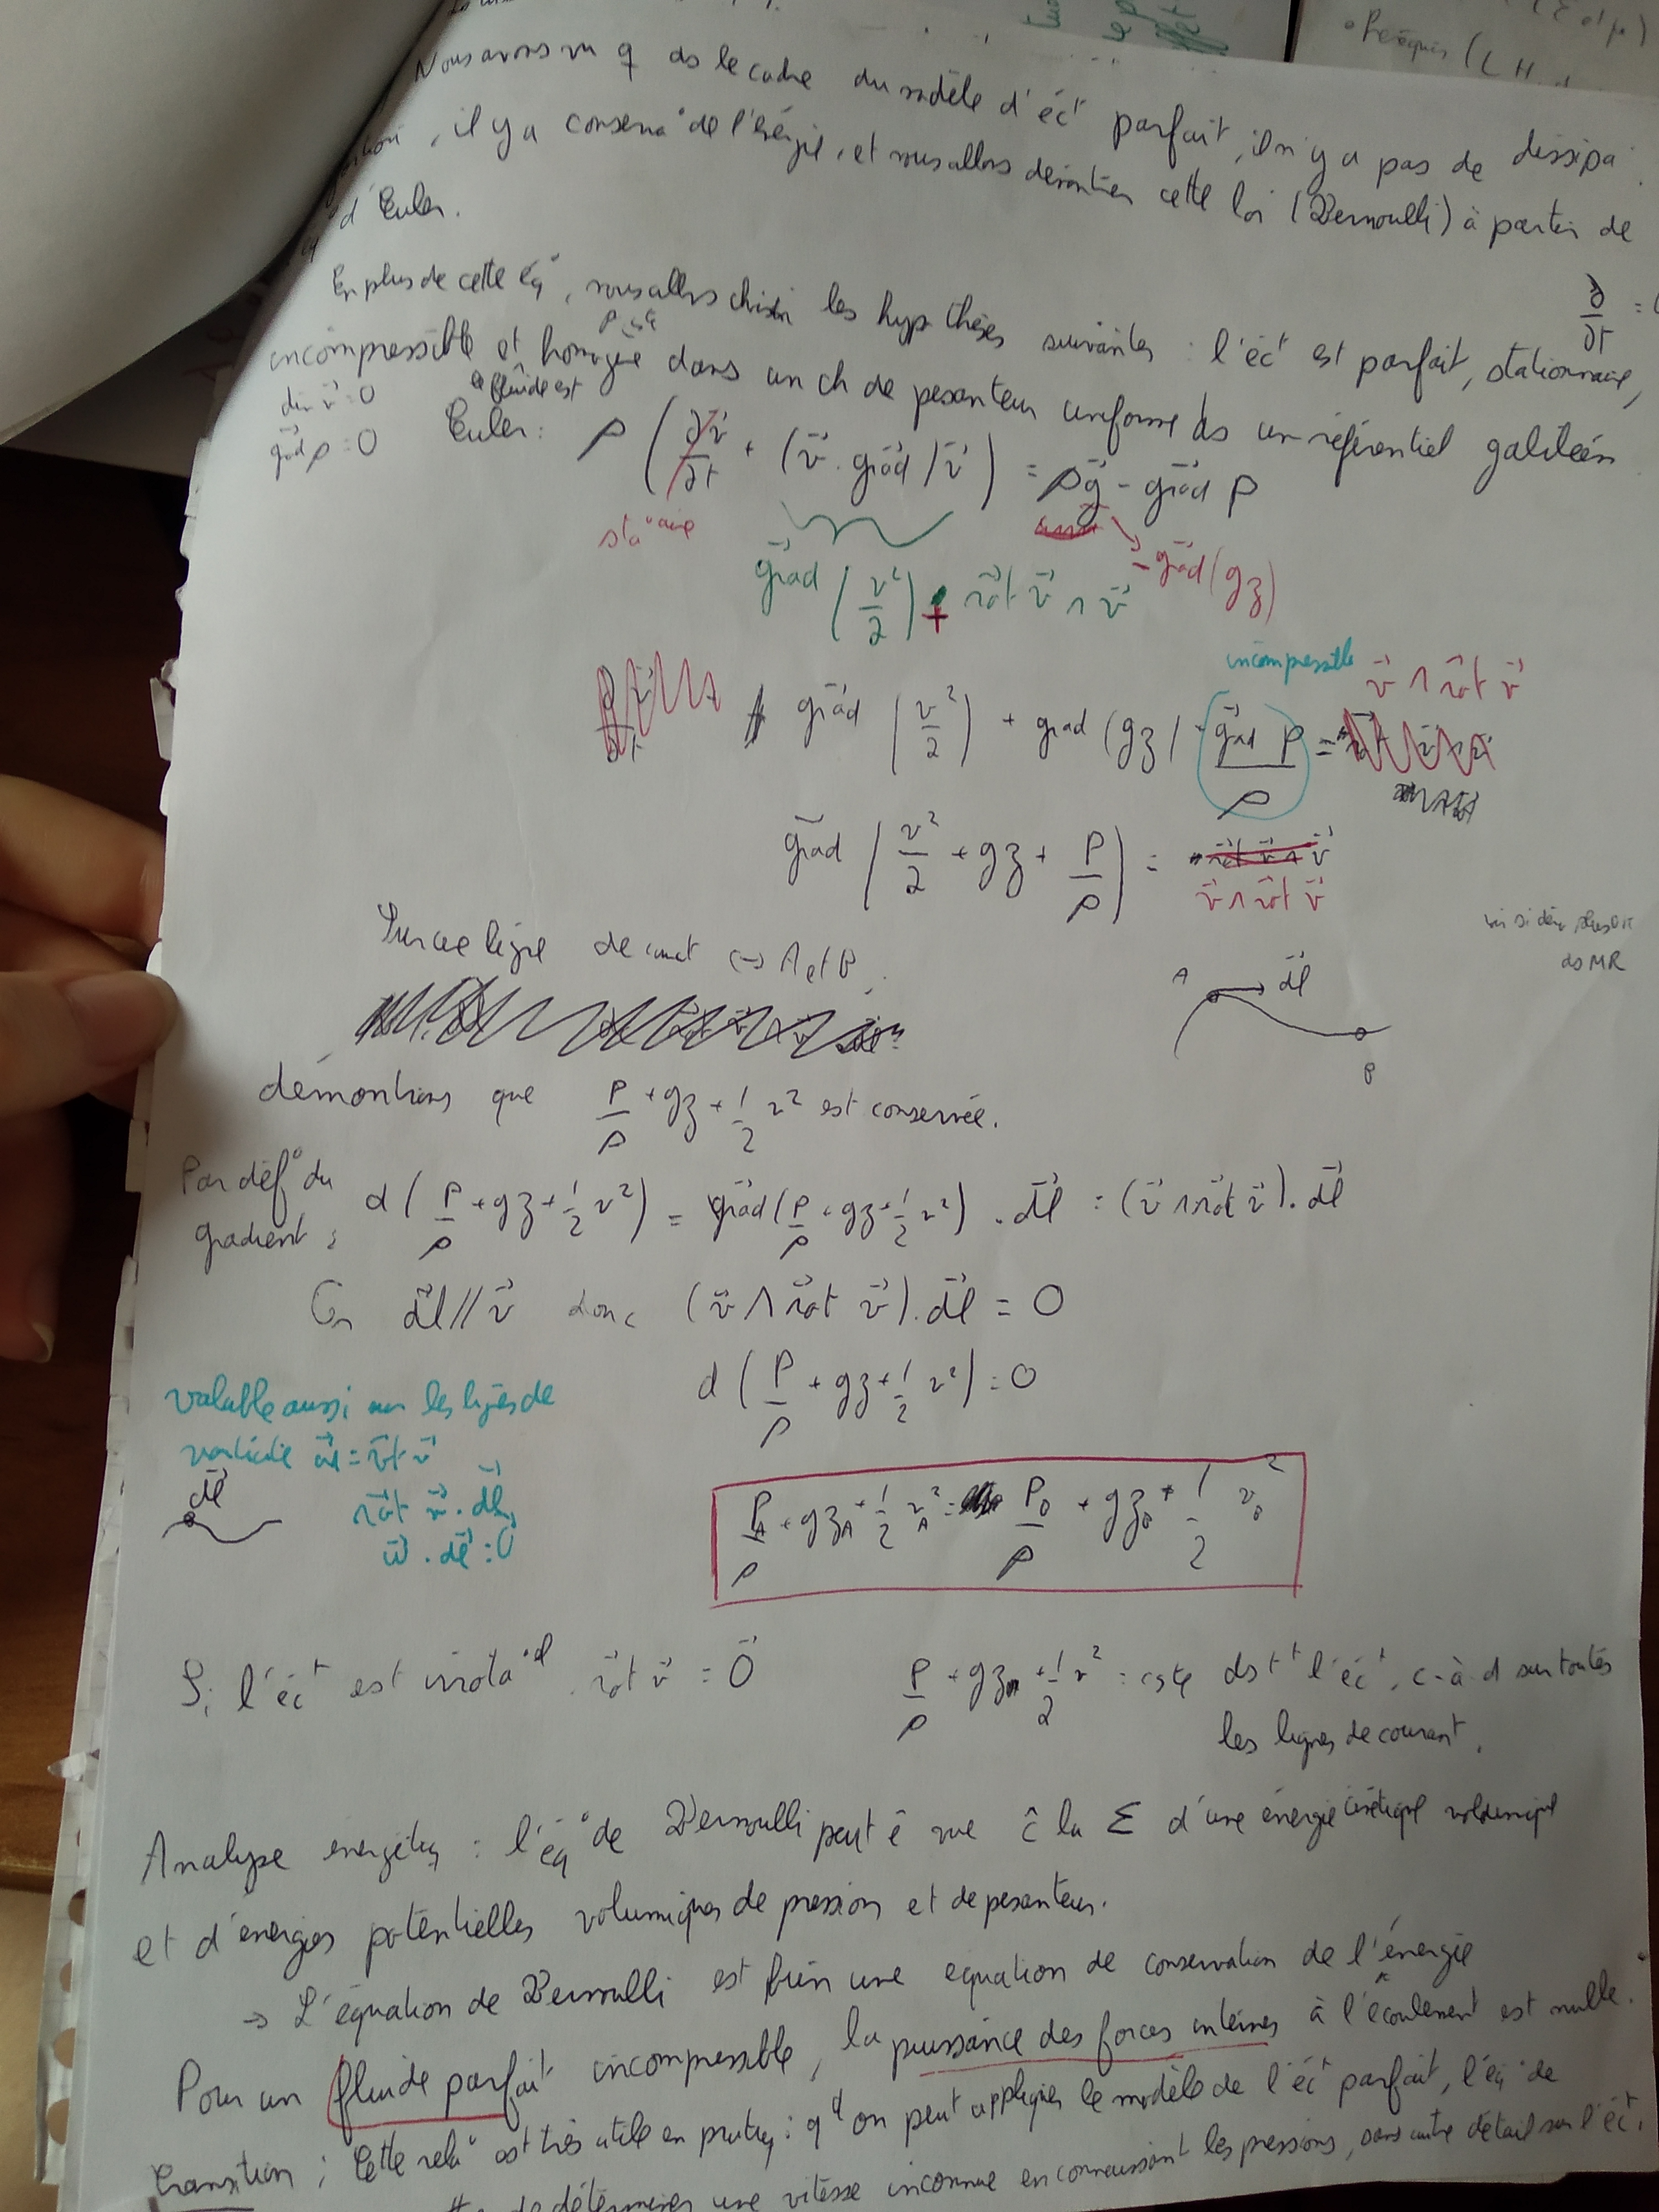 Péréquis (
Nous avons vu q ds le cadre du modèle d'éct parfait, il n'y a pas de dissipa
, il y a conserva° de l'énergie, et nous allons démontrer cette loi (Bernoulli) à partir de
d'Euler.
En plus de cette éq°, nous allons choisir les hypothèses suivantes : l'éct est parfait, stationnaire,
∂/∂t =
incompressible et homogène dans un ch de pesanteur uniforme ds un référentiel galiléen
div v⃗ = 0
le fluide est
grad⃗ ρ = 0
Euler : ρ ( ∂v⃗/∂t + (v⃗ . grad⃗) v⃗ ) = ρg⃗ - grad⃗ P
sta°aire
- grad⃗(gz)
grad⃗ (v²/2) + rot⃗ v⃗ ∧ v⃗
incompressible
grad⃗ (v²/2) + grad (gz) + grad⃗ P/ρ = v⃗ ∧ rot⃗ v⃗
grad⃗ ( v²/2 + gz + P/ρ ) = v⃗ ∧ rot⃗ v⃗
Sur une ligne de cnt A et B
ds MR
A dl⃗
B
démontrons que P/ρ + gz + 1/2 v² est conservée.
Par déf° du gradient : d ( P/ρ + gz + 1/2 v² ) = grad⃗ ( P/ρ + gz + 1/2 v² ) . dl⃗ = (v⃗ ∧ rot⃗ v⃗) . dl⃗
Or dl⃗ // v⃗ donc (v⃗ ∧ rot⃗ v⃗) . dl⃗ = 0
d ( P/ρ + gz + 1/2 v² ) = 0
valable aussi sur les lignes de
vorticité ω⃗ = rot⃗ v⃗
dl⃗
rot⃗ v⃗ . dl⃗
ω⃗ . dl⃗ = 0
P_A/ρ + gz_A + 1/2 v_A² = P_B/ρ + gz_B + 1/2 v_B²
Si l'éct est irrota°el, rot⃗ v⃗ = 0⃗ P/ρ + gz + 1/2 v² = cste ds tt l'éct, c-à-d sur toutes
les lignes de courant.
Analyse énergétiq : l'éq° de Bernoulli peut ê vue ĉ la Σ d'une énergie cinétique volumique
et d'énergies potentielles volumiques de pression et de pesanteur.
→ L'équation de Bernoulli est bien une équation de conservation de l'énergie
Pour un fluide parfait incompressible, la puissance des forces internes à l'écoulement est nulle.
Transition : Cette rela° est très utile en pratiq : qd on peut appliquer le modèle de l'éct parfait, l'éq° de
de déterminer une vitesse inconnue en connaissant les pressions, sans autre détail sur l'éct.